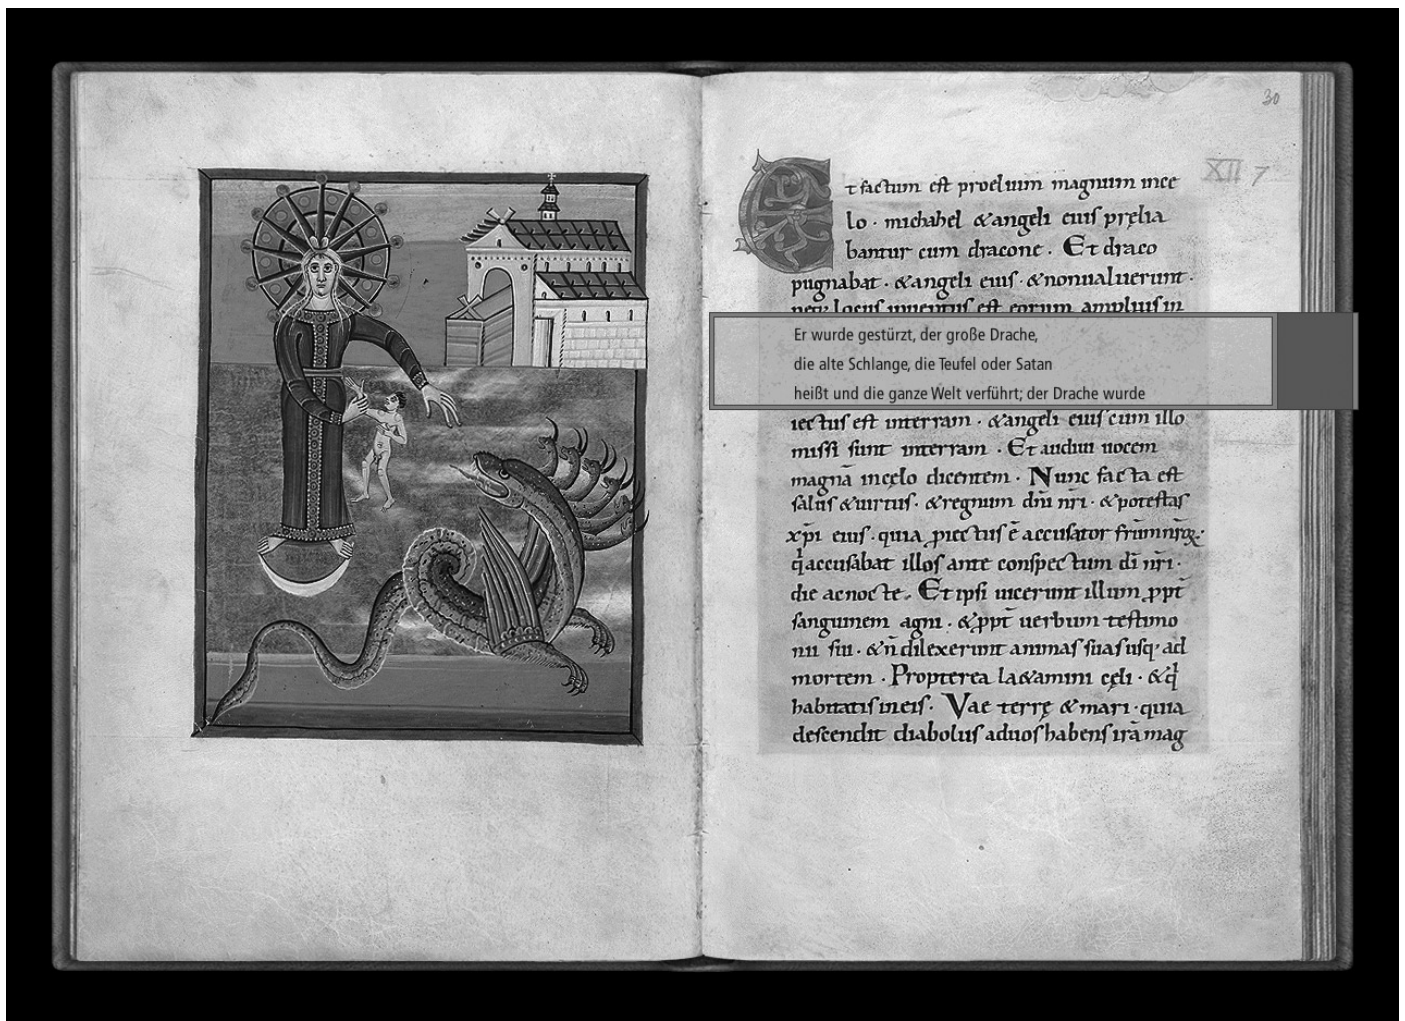 30
XII 7
Et factum est proelium magnum ince
lo · michahel & angeli eius pręlia
bantur cum dracone · Et draco
pugnabat · & angeli eius · & non ualuerunt ·
neq; locus inuentus est eorum amplius in
Er wurde gestürzt, der große Drache,
die alte Schlange, die Teufel oder Satan
heißt und die ganze Welt verführt; der Drache wurde
iectus est interram · & angeli eius cum illo
missi sunt interram · Et audiui uocem
magnā incęlo dicentem · Nunc facta est
salus & uirtus · & regnum dn̄i nr̄i · & potestas
xp̄i eius · quia proiectus ē accusator
accusabat illos ante conspectum dī nr̄i ·
die ac nocte · Et ipsi uicerunt illum ꝓpt̄
sanguinem agni · & ꝓpt̄ uerbum testimo
nii sui · & n̄ dilexerunt animas suas usq; ad
mortem · Propterea laetamini cęli · & q̄
habitatis in eis · Vae terrę & mari · quia
descendit diabolus aduos habens irā mag